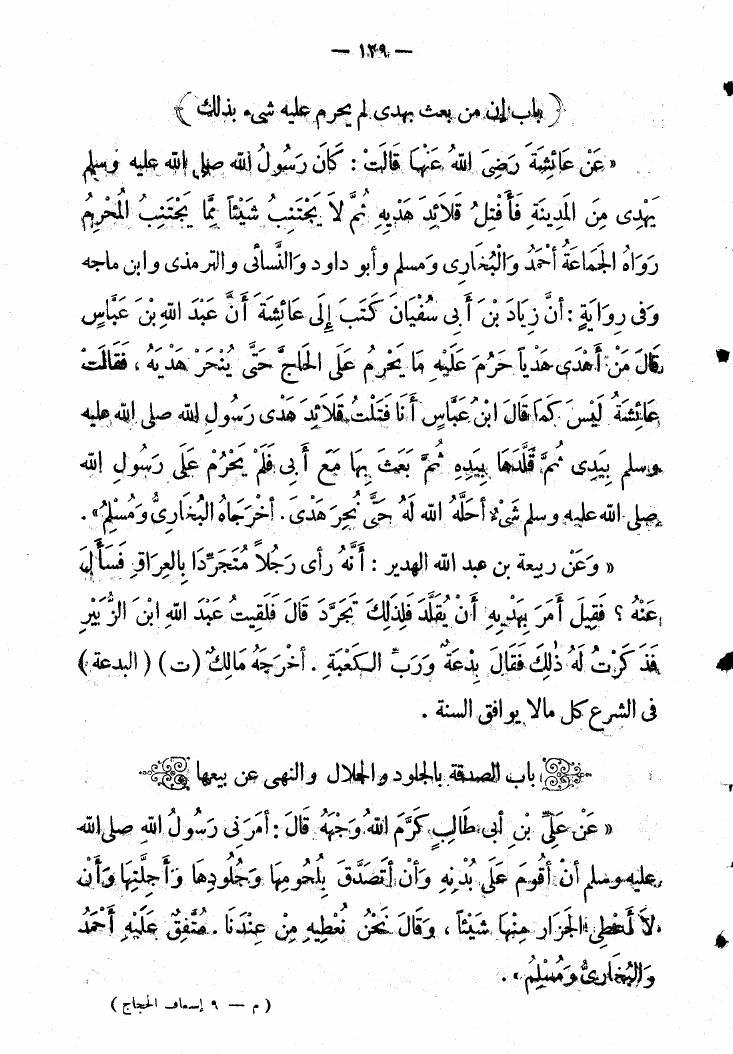 — ١٢٩ —
( باب إن من بعث بهدى لم يحرم عليه شىء بذلك )
« عَنْ عَائِشَةَ رَضِىَ اللهُ عَنْهَا قَالَتْ : كَانَ رَسُولُ الله صلى الله عليه وسلم
يَهْدِى مِنَ المَدِينَةِ فَأَفْتِلُ قَلائِدَ هَدْيِهِ ثُمَّ لاَ يَجْتَنِبُ شَيْئاً مِمَّا يَجْتَنِبُ المُحْرِمُ
رَوَاهُ الجَمَاعَةُ أَحْمَدُ وَالْبُخَارِى وَمسلم وأبو داود وَالنَّسائى والترمذى وابن ماجه
وَفى رِوَايَةٍ : أنَّ زِيَادَ بْنَ أَبِى سُفْيَانَ كَتَبَ إِلَى عَائِشَةَ أَنَّ عَبْدَ اللهِ بْنَ عَبَّاسٍ
قَالَ مَنْ أَهْدَى هَدْياً حَرُمَ عَلَيْهِ مَا يَحْرُمُ عَلَى الحَاجِّ حَتَّى يُنْحَرَ هَدْيُهُ ، فَقَالَتْ
عَائِشَةُ لَيْسَ كَمَا قَالَ ابْنُ عَبَّاسٍ أَنَا فَتَلْتُ قَلائِدَ هَدْى رَسُولِ الله صلى الله عليه
وسلم بِيَدِى ثُمَّ قَلَّدَهَا بِيَدِهِ ثُمَّ بَعَثَ بِهَا مَعَ أَبِى فَلَمْ يَحْرُمْ عَلَى رَسُولِ الله
صلى الله عليه وسلم شَىْءٌ أَحَلَّهُ الله لَهُ حَتَّى نُحِرَ هَدْىَ . أَخْرَجَاهُ البُخَارِىُّ وَمُسْلِمُ » .
« وَعَنْ ربيعة بن عبد الله الهدير : أَنَّهُ رأى رَجُلاً مُتَجَرِّدَا بِالعِرَاقِ فَسَأَلَ
عَنْهُ ؟ فَقِيلَ أَمَرَ بِهَدْيِهِ أَنْ يُقَلَّدَ فَلِذَلِكَ تَجَرَّدَ قَالَ فَلَقِيتُ عَبْدَ اللهِ ابْنَ الزُّبَيْرِ
فَذَكَرْتُ لَهُ ذٰلِكَ فَقَالَ بِدْعَةٌ وَرَبِّ الكَعْبَةِ . أَخْرَجَهُ مَالِكٌ (ت) ( البدعة )
فى الشرع كل مالا يوافق السنة .
باب الصدقة بالجلود والجلال والنهى عن بيعها
« عَنْ عَلِىِّ بْنِ أَبِى طَالِبٍ كَرَّمَ اللهُ وَجْهَهُ قَالَ : أَمَرَنِى رَسُولُ اللهِ صلى الله
عليه وسلم أَنْ أَقُومَ عَلَى بُدْنِهِ وَأَنْ أَتَصَدَّقَ بِلُحُومِهَا وَجُلُودِهَا وَأَجِلَّتِهَا وَأَنْ
لاَ أُعْطِى الجَزَّارَ مِنْهَا شَيْئاً ، وَقَالَ نَحْنُ نُعْطِيهِ مِنْ عِنْدَنَا . مُتَّفِقٌ عَلَيْهِ أَحْمَدُ
وَالْبُخَارِىُّ وَمُسْلِمُ » .
( م — ٩ إسعاف الحجاج )